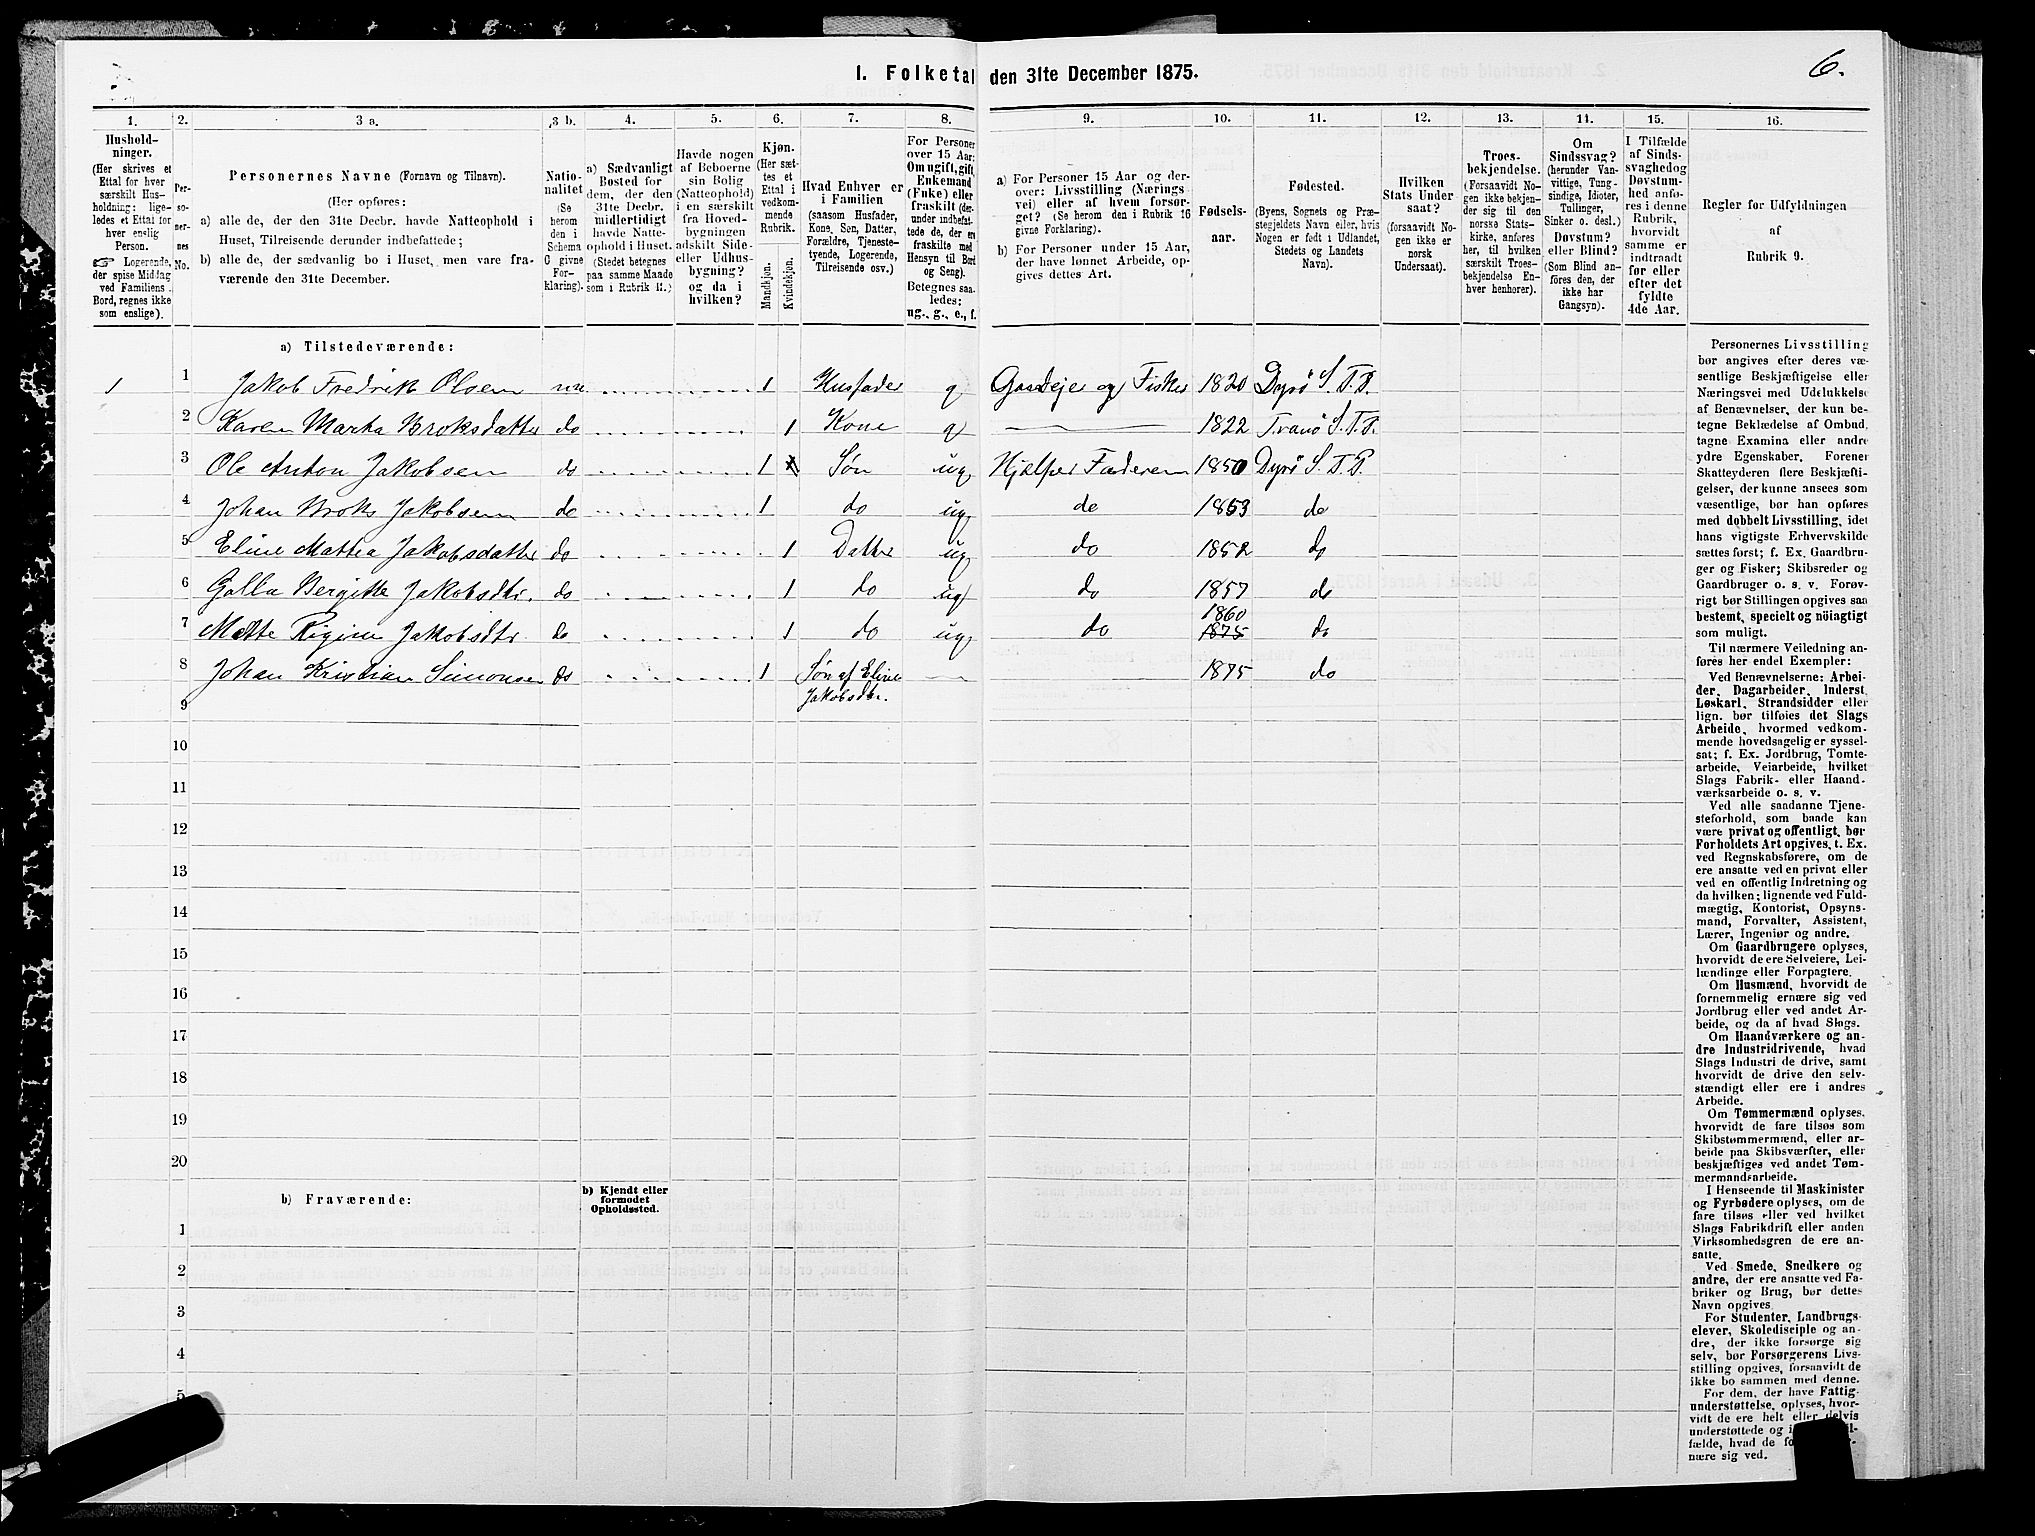 6.
1. Folketal den 31te December 1875.
1. 2. 3 a. 3 b. 4. 5. 6. 7. 8. 9. 10. 11. 12. 13. 11. 15. 16.
Hushold-
ninger.
(Her skrives et
Ettal for hver
særskilt Hus-
holdning: lige-
ledes et Ettal for
hver enslig
Person.
☞ Logerende,
der spise Middag
ved Familiens
Bord, regnes ikke
som enslige).
Per-
so-
ner-
nes
No.
Personernes Navne (Fornavn og Tilnavn).
(Her opføres:
a) alle de, der den 31te Decbr. havde Natteophold i
Huset, Tilreisende derunder indbefattede;
b) alle de, der sædvanlig bo i Huset, men vare fra-
værende den 31te December.
Natio-
nalitet
(Se
herom
den i
Schema
C givne
For-
klaring).
a) Sædvanligt
Bosted for
dem, der den
31te Decbr.
midlertidigt
havde Natte-
ophold i Huset.
(Stedet betegnes
paa samme Maade
som i Rubrik 11.)
Havde nogen
af Beboerne
sin Bolig
(Natteophold)
i en særskilt
fra Hoved-
bygningen
adskilt Side-
eller Udhus-
bygning?
og da i
hvilken?
Kjøn.
(Her sæt-
tes et
Ettal i
vedkom-
mende
Rubrik.
Mandkjøn.
Kvindekjøn.
Hvad Enhver er
i Familien
(saasom Husfader,
Kone, Søn, Datter,
Forældre, Tjeneste-
tyende, Logerende,
Tilreisende osv.)
For Personer
over 15 Aar:
Om ugift, gift,
Enkemand
(Enke) eller
fraskilt (der-
under indbefat-
tede de, der ere
fraskilte med
Hensyn til Bord
og Seng).
Betegnes saa-
ledes:
ug., g., e., f.
a) For Personer 15 Aar og der-
over: Livsstilling (Nærings-
vei) eller af hvem forsør-
get? (Se herom den i Rubrik 16
givne Forklaring).
b) For Personer under 15 Aar,
der have lønnet Arbeide, op-
gives dettes Art.
Fødsels-
aar.
Fødested.
(Byens, Sognets og Præ-
stegjeldets Navn eller, hvis
Nogen er født i Udlandet,
Stedets og Landets
Navn).
Hvilken
Stats Under
saat?
(forsaavidt No-
gen ikke er
norsk
Undersaat).
Troes-
bekjendelse.
(Forsaavidt No-
gen ikke bekjen-
der sig til den
norske Stats-
kirke, anføres
her, til hvilken
særskilt Troes-
bekjendelse En-
hver henhører).
Om
Sindssvag?
(herunder Van-
vittige, Tung-
sindige, Idioter,
Tullinger,
Sinker o. desl.)
Døvstum?
eller Blind?
(Som Blind an-
føres den, der
ikke har
Gangsyn).
I Tilfælde
af Sinds-
svaghed og
Døvstum-
hed anfø-
res i denne
Rubrik,
hvorvidt
samme er
indtraadt
før eller
efter det
fyldte
4de Aar.
Regler for Udfyldningen
af
Rubrik 9.
a) Tilstedeværende:
1 1 Jakob Fredrik Olsen nu. 1 Husfader g Gaardejer og Fisker 1820 Dyrø S. T. P.
2 Karen Marka Kroksdatter do 1 Kone g 1822 Tranø S. T. P.
3 Ole Anton Jakobsen do 1 Søn ug Hjælper Faderen 1850 Dyrø S. T. P.
4 Johan Kroks Jakobsen do 1 do ug do 1853 do
5 Eline Mattea Jakobsdatter do 1 Datter ug do 1852 do
6 Golla Bergitte Jakobsdtr. do 1 do ug do 1857 do
1860
7 Mette Rigine Jakobsdtr do 1 do ug do 1875 do
8 Johan Kristian Simonsen do 1 Søn af Eline 1875 do
Jakobsdtr.
9
10
11
12
13
14
15
16
17
18
19
20
b) Fraværende:
b) Kjendt eller
formodet
Opholdssted.
1
2
3
4
5
Personernes Livsstilling
bør angives efter deres væ-
sentlige Beskjæftigelse eller
Næringsvei med Udelukkelse
af Benævnelser, der kun be-
tegne Beklædelse af Ombud,
tagne Examina eller andre
ydre Egenskaber. Forener
Skatteyderen flere Beskjæfti-
gelser, der kunne ansees som
væsentlige, bør han opføres
med dobbelt Livsstilling, idet
hans vigtigste Erhvervskilde
sættes først; f. Ex. Gaardbru-
ger og Fisker; Skibsreder og
Gaardbruger o. s. v. Forøv-
rigt bør Stillingen opgives saa
bestemt, specielt og nöiagtigt
som muligt.
Til nærmere Veiledning an-
føres her endel Exempler:
Ved Benævnelserne: Arbei-
der, Dagarbeider, Inderst,
Løskarl, Strandsidder eller
lign. bør tilføies det Slags
Arbeide, hvormed vedkom-
mende hovedsagelig er syssel-
sat; f. Ex. Jordbrug, Tomte-
arbeide, Veiarbeide, hvilket
Slags Fabrik- eller Haand-
værksarbeide o. s. v.
Ved alle saadanne Tjene-
steforhold, som baade kan
være privat og offentligt, bør
Forholdets Art opgives, t. Ex.
ved Regnskabsførere, om de
ere ansatte ved en privat eller
ved en offentlig Indretning og
da hvilken; lignende ved Fuld-
mægtig, Kontorist, Opsyns-
mand, Forvalter, Assistent,
Lærer, Ingeniør og andre.
Om Gaardbrugere oplyses,
hvorvidt de ere Selveiere, Lei-
lændinge eller Forpagtere.
Om Husmænd, hvorvidt de
fornemmelig ernære sig ved
Jordbrug eller ved andet Ar-
beide, og da af hvad Slags.
Om Haandværkere og an-
dre Industridrivende, hvad
Slags Industri de drive, samt
hvorvidt de drive den selv-
stændigt eller ere i andres
Arbeide.
Om Tømmermænd oplyses,
hvorvidt de fare tilsøs som
Skibstømmermænd, eller ar-
beide paa Skibsværfter, eller
beskjæftiges ved andet Tøm-
mermandsarbeide.
I Henseende til Maskinister
og Fyrbødere oplyses, om de
fare tilsøs eller ved hvilket
Slags Fabrikdrift eller anden
Virksomhedsgren de ere an-
satte.
Ved Smede, Snedkere og
andre, der ere ansatte ved Fa-
briker og Brug, bør dettes
Navn opgives.
For Studenter, Landbrugs-
elever, Skoledisciple og an-
dre, der ikke forsørge sig
selv, bør Forsørgerens Livs-
stilling opgives, forsaavidt de
ikke bo sammen med denne.
For dem, der have Fattig-
understøttelse, oplyses, hvor-
vidt de ere helt eller delvis
understøttede og i
fælde, hvad de
nære sig ved.